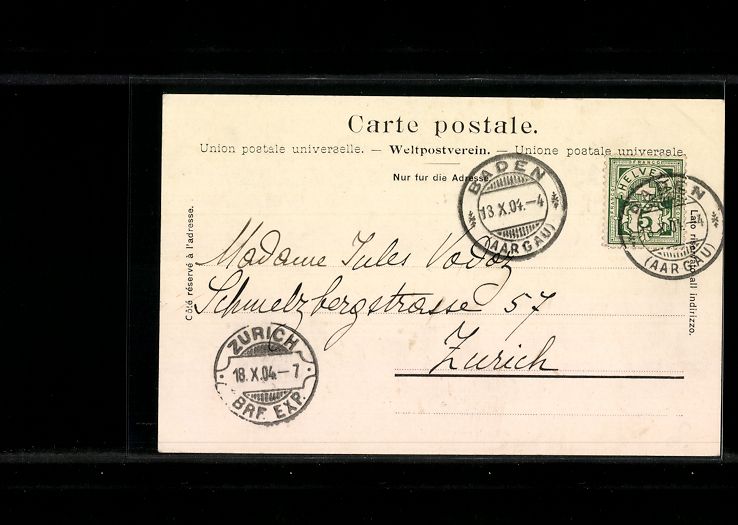 Carte postale.
Union postale universelle. — Weltpostverein. — Unione postale universale.
Nur fur die Adresse.
BADEN
13 X.04.–4
(AARGAU)
FRANCO
HELVETIA
5
BADEN
(AARGAU)
Côté réservé à l'adresse.
Lato riservato all indirizzo.
Madame Jules Vodoz
Schmelzbergstrasse 57
Zurich
ZÜRICH
18.X.04.–7
BRF. EXP.